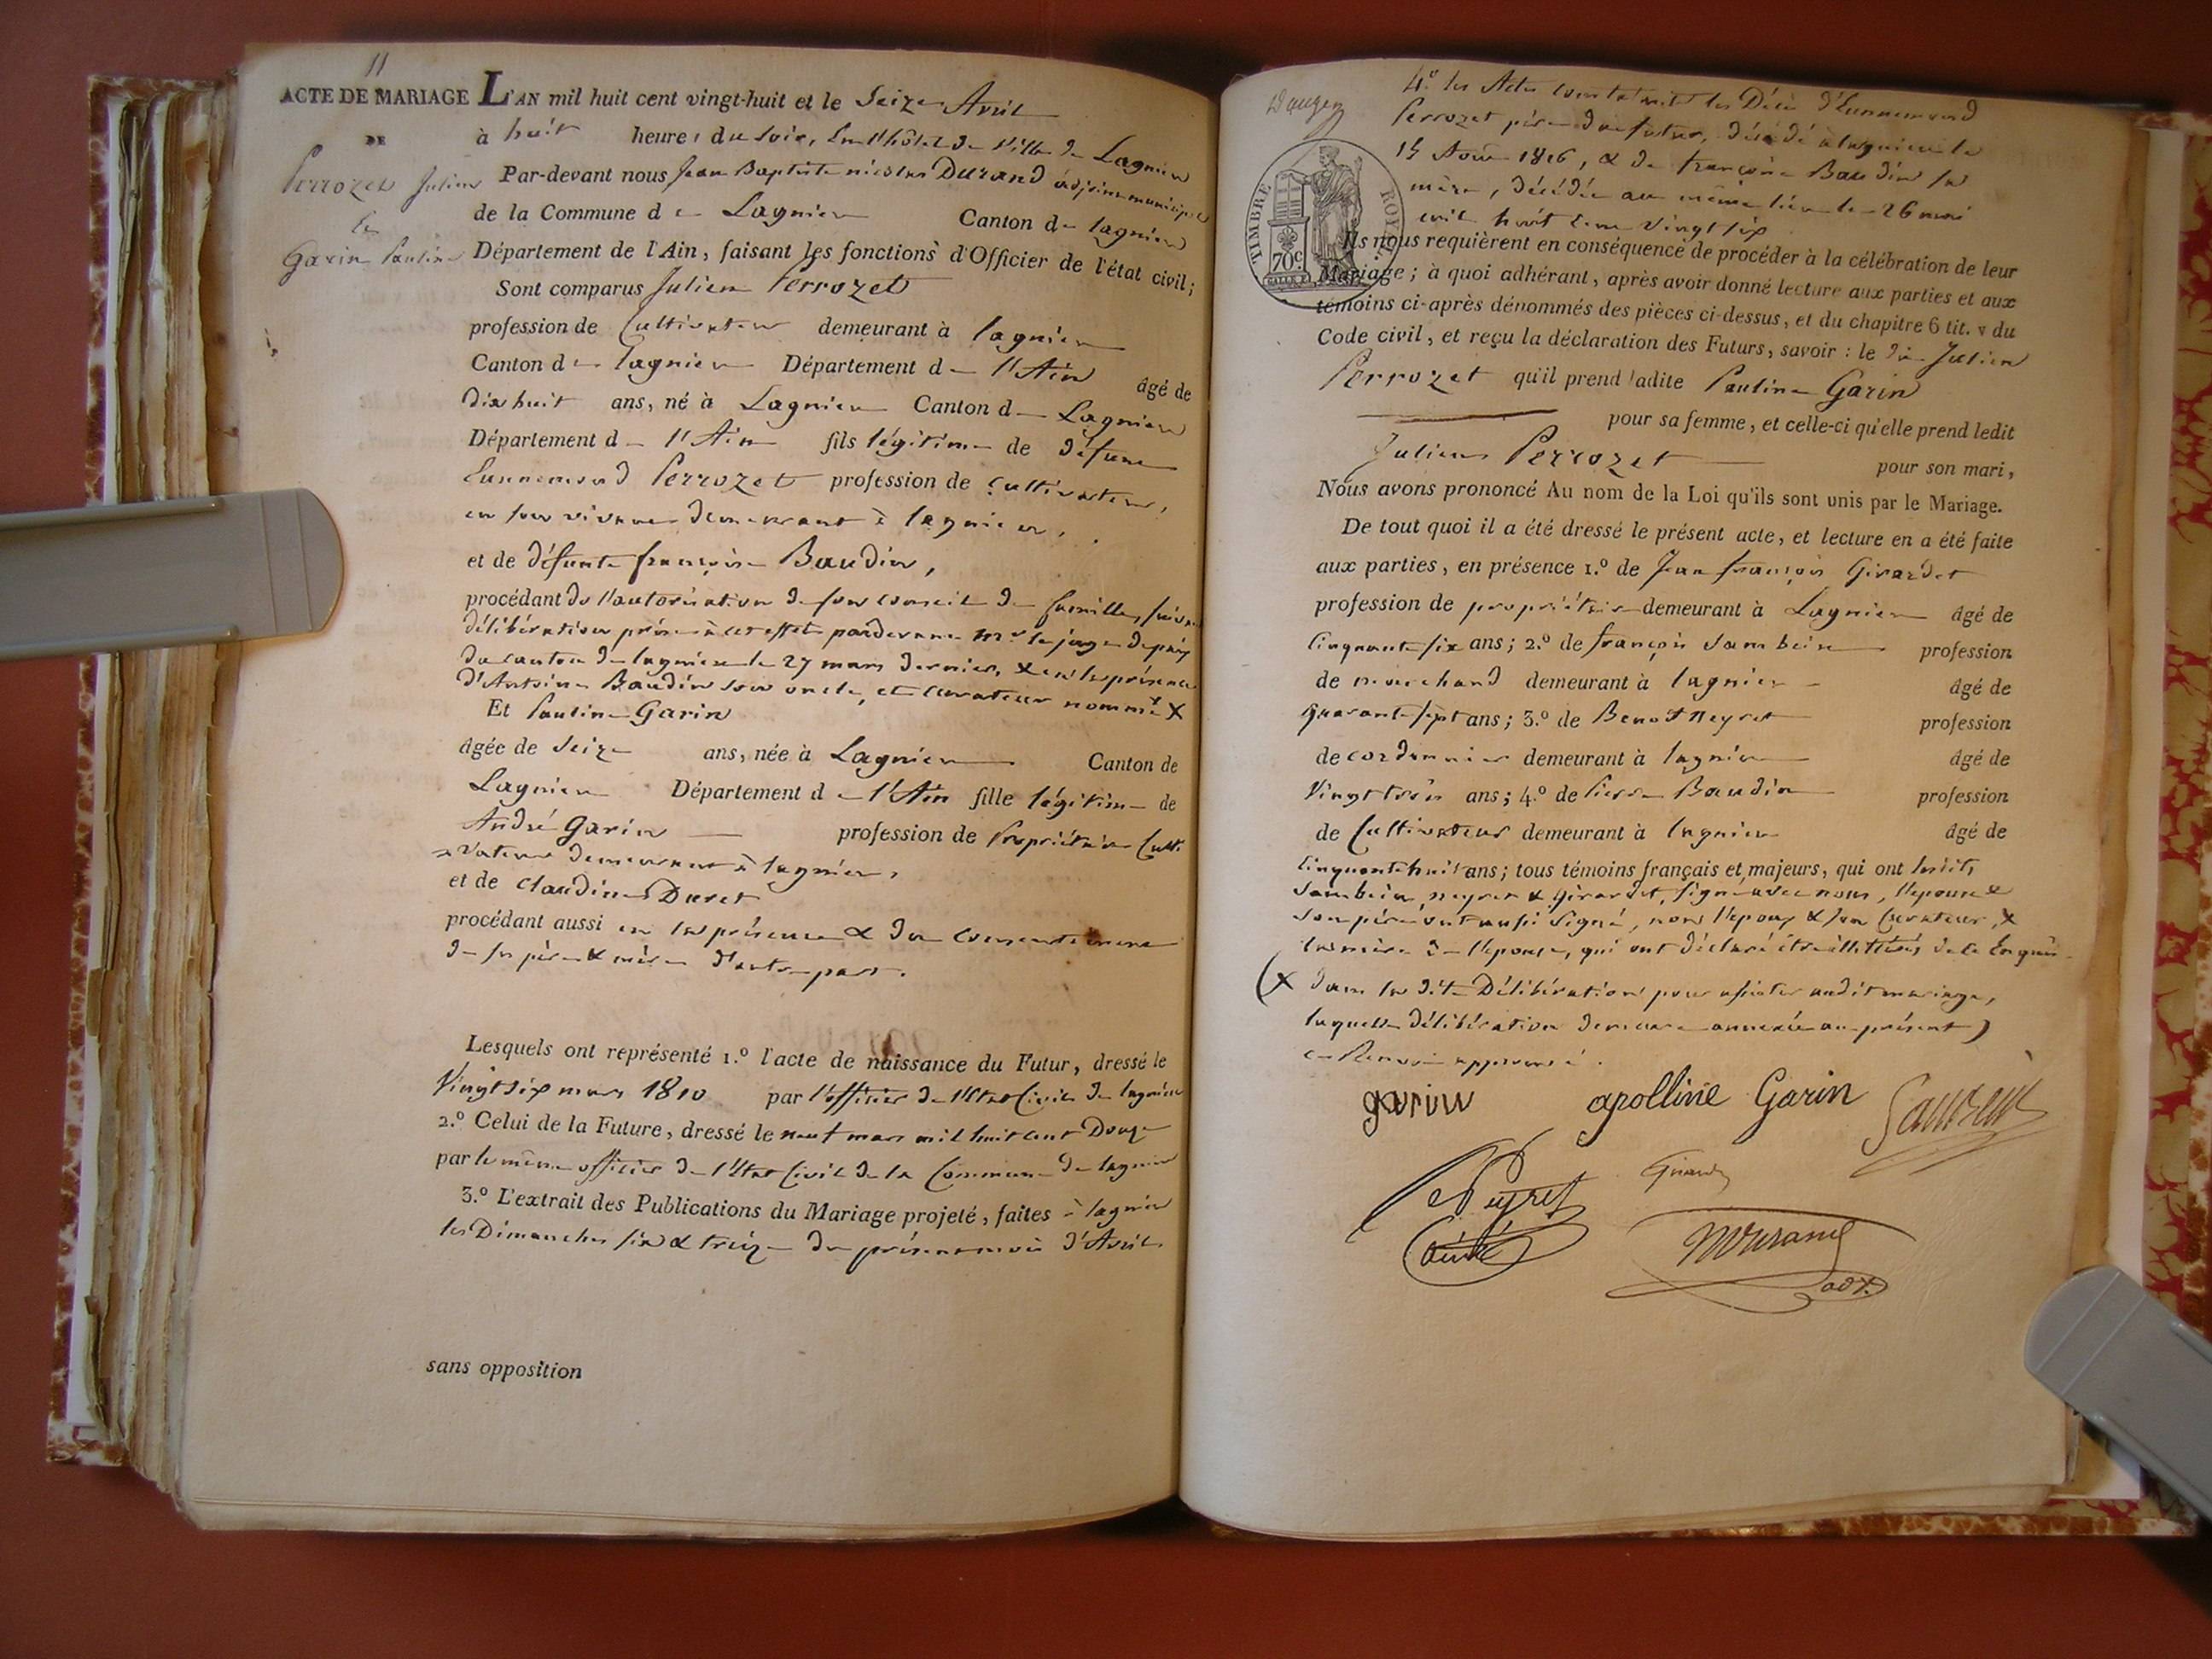 11
ACTE DE MARIAGE L'AN mil huit cent vingt-huit et le Seize Avril
DE
Perrozet Julien
et
Garin Pauline
à huit heures du soir, En l'hôtel de Ville de Lagnieu
Par-devant nous Jean Baptiste nicolas Durand adjoint municipal
de la Commune de Lagnieu Canton de lagnieu
Département de l'Ain, faisant les fonctions d'Officier de l'état civil;
Sont comparus Julien Perrozet
profession de Cultivateur demeurant à lagnieu
Canton de lagnieu Département de l'Ain âgé de
dix huit ans, né à Lagnieu Canton de Lagnieu
Département de l'Ain fils légitime de défunt
Ennemond Perrozet profession de Cultivateur,
en son vivant demeurant à lagnieu,
et de défunte françoise Baudin,
procédant de l'autorisation de son conseil de famille, suivant
délibération prise à cet effet pardevant Mr le juge de paix
du canton de lagnieu le 27 mars dernier, & en la présence
d'Antoine Baudin son oncle, et curateur nommé X
Et Pauline Garin
âgée de Seize ans, née à Lagnieu Canton de
Lagnieu Département de l'Ain fille légitime de
André Garin profession de Propriétaire Culti
=vateur demeurant à lagnieu,
et de Claudine Duret
procédant aussi en la présence & du consentement
de ses père & mère d'autre part.
Lesquels ont représenté 1.º l'acte de naissance du Futur, dressé le
Vingt six mars 1810 par l'officier de l'Etat Civil de lagnieu
2.º Celui de la Future, dressé le neuf mars mil huit cent Douze
par le même officier de l'Etat Civil de la Commune de lagnieu
3.º L'extrait des Publications du Mariage projeté, faites à lagnieu
les Dimanches six & treize du présent mois d'Avril
sans opposition
TIMBRE ROYAL
70c.
4º les Actes constatant les Décès d'Ennemond
Perrozet père du futur, décédé à lagnieu le
15 Août 1816, & de françoise Baudin sa
mère, décédée au même lieu le 26 mai
mil huit cent vingt six
Ils nous requièrent en conséquence de procéder à la célébration de leur
Mariage; à quoi adhérant, après avoir donné lecture aux parties et aux
témoins ci-après dénommés des pièces ci-dessus, et du chapitre 6 tit. v du
Code civil, et reçu la déclaration des Futurs, savoir: le dit Julien
Perrozet qu'il prend ladite Pauline Garin
pour sa femme, et celle-ci qu'elle prend ledit
Julien Perrozet pour son mari,
Nous avons prononcé Au nom de la Loi qu'ils sont unis par le Mariage.
De tout quoi il a été dressé le présent acte, et lecture en a été faite
aux parties, en présence 1.º de Jean françois Girardet
profession de propriétaire demeurant à Lagnieu âgé de
Cinquante six ans; 2.º de françois Sambein profession
de marchand demeurant à lagnieu âgé de
quarante sept ans; 3.º de Benoit Neyret profession
de cordonnier demeurant à lagnieu âgé de
Vingt trois ans; 4.º de Pierre Baudin profession
de Cultivateur demeurant à lagnieu âgé de
Cinquante huit ans; tous témoins français et majeurs, qui ont lesdits
Sambein, neyret & Girardet, signé avec nous, l'epouse &
son père ont aussi signé, non l'epoux & son Curateur, &
la mère de l'epouse, qui ont déclaré être illettrés de ce Enquis
(X dans la dite Délibération pour assister audit mariage,
laquelle délibération demeure annexée au présent)
ce Renvoi approuvé.
garin apolline Garin
Neyret Girardet
NDurand
adj.